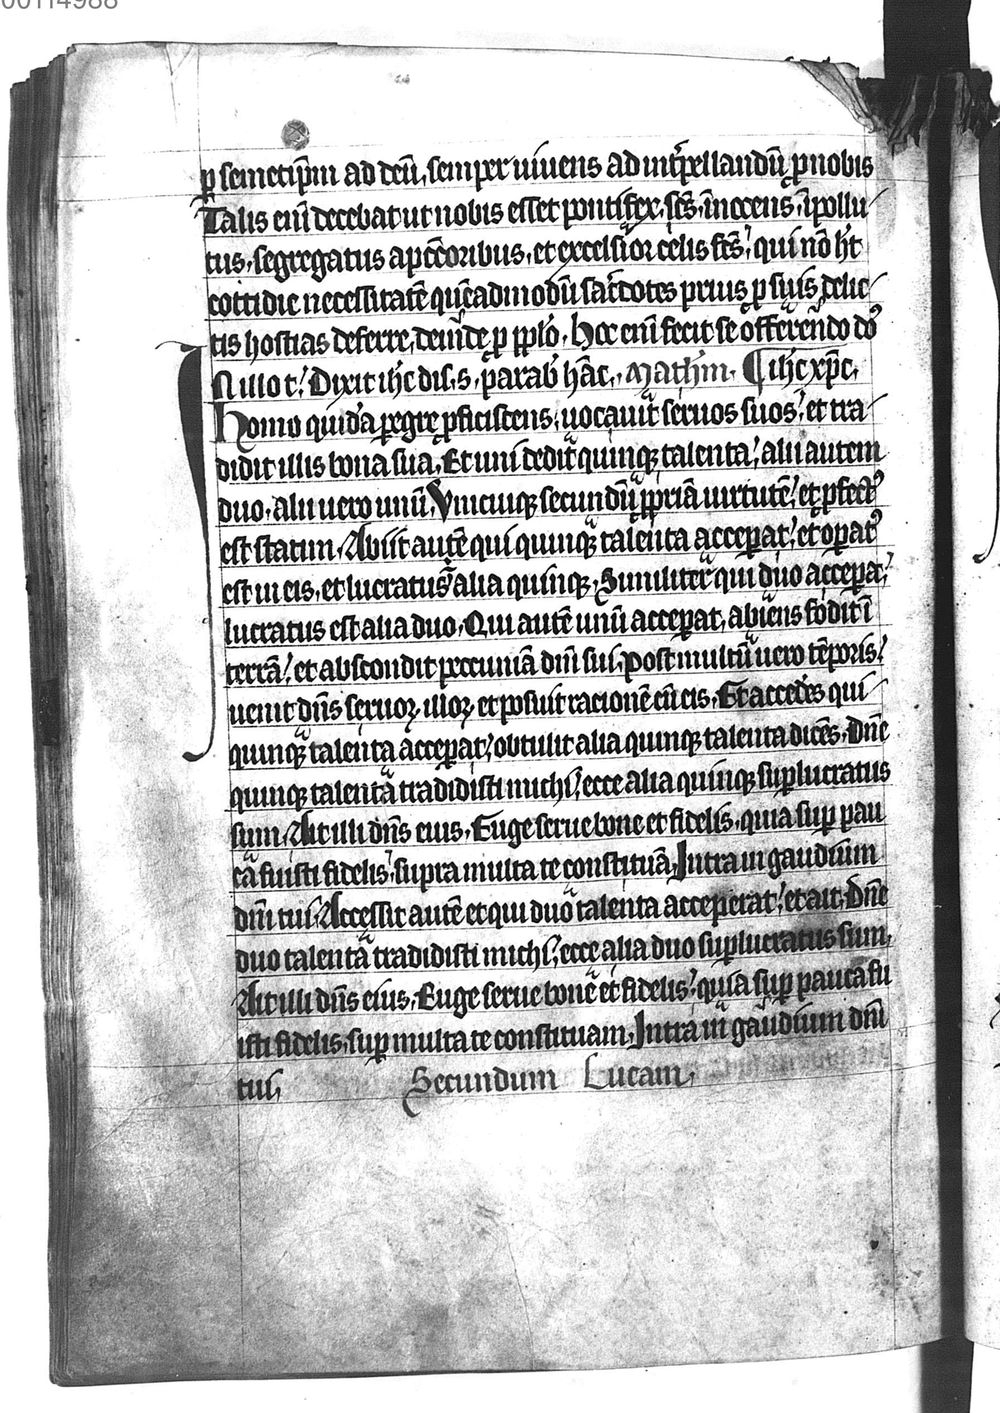 00114988
ꝑ semetip̄m ad deū, semper uiuens ad int̄pellandū ꝓ nobis
Talis enī decebat ut nobis esset pontifex, sc̄s, īnocens, īpollu
tus, segregatus a pcc̄oribus, et excelsior celis fc̄s, qui nō h̄t
cottidie necessitatē quēadmodū sac̄dotes prius ꝑ suis delic
tis hostias deferre, deīde ꝑ pplō. Hoc enī fecit se offerendo dō
In illo t̄. Dixit ih̄c dis. s. parab̄ hāc. Mathm̄. ih̄c xp̄c.
Homo quidā peregre ꝓficiscens, uocauit seruos suos, et tra
didit illis bona sua. Et uni dedit quinqꝫ talenta, alii autem
duo, alii uero unū. Vnicuiqꝫ secundū ꝓpriā uirtutē, et ꝓfectꝰ
est statim. Abiit autē qui quinqꝫ talenta acceꝑat, et oꝑatꝰ
est in eis, et lucratus ē alia quinqꝫ. Similiter qui duo acceꝑat,
lucratus est alia duo. Qui autē unū acceꝑat, abiens fodit ī
terrā, et abscondit peccuniā dn̄i sui. Post multū uero tēporis,
uenit dn̄s seruoꝝ illoꝝ et posuit racionē cū eis. Et accedēs qui
quinqꝫ talenta acceꝑat, obtulit alia quinqꝫ talenta dicēs. Dn̄e
quinqꝫ talenta tradidisti michi, ecce alia quinqꝫ suꝑlucratus
sum. Ait illi dn̄s eius. Euge serue bone et fidelis, quia suꝑ pau
ca fuisti fidelis, supra multa te constituā. Intra in gaudium
dn̄i tui. Accessit autē et qui duo talenta acceperat, et ait. Dn̄e
duo talenta tradidisti michi, ecce alia duo suꝑlucratus sum.
Ait illi dn̄s eius. Euge serue bone et fidelis, quia suꝑ pauca fu
isti fidelis, suꝑ multa te constituam. Intra in gaudium dn̄i
tui. Secundum Lucam,